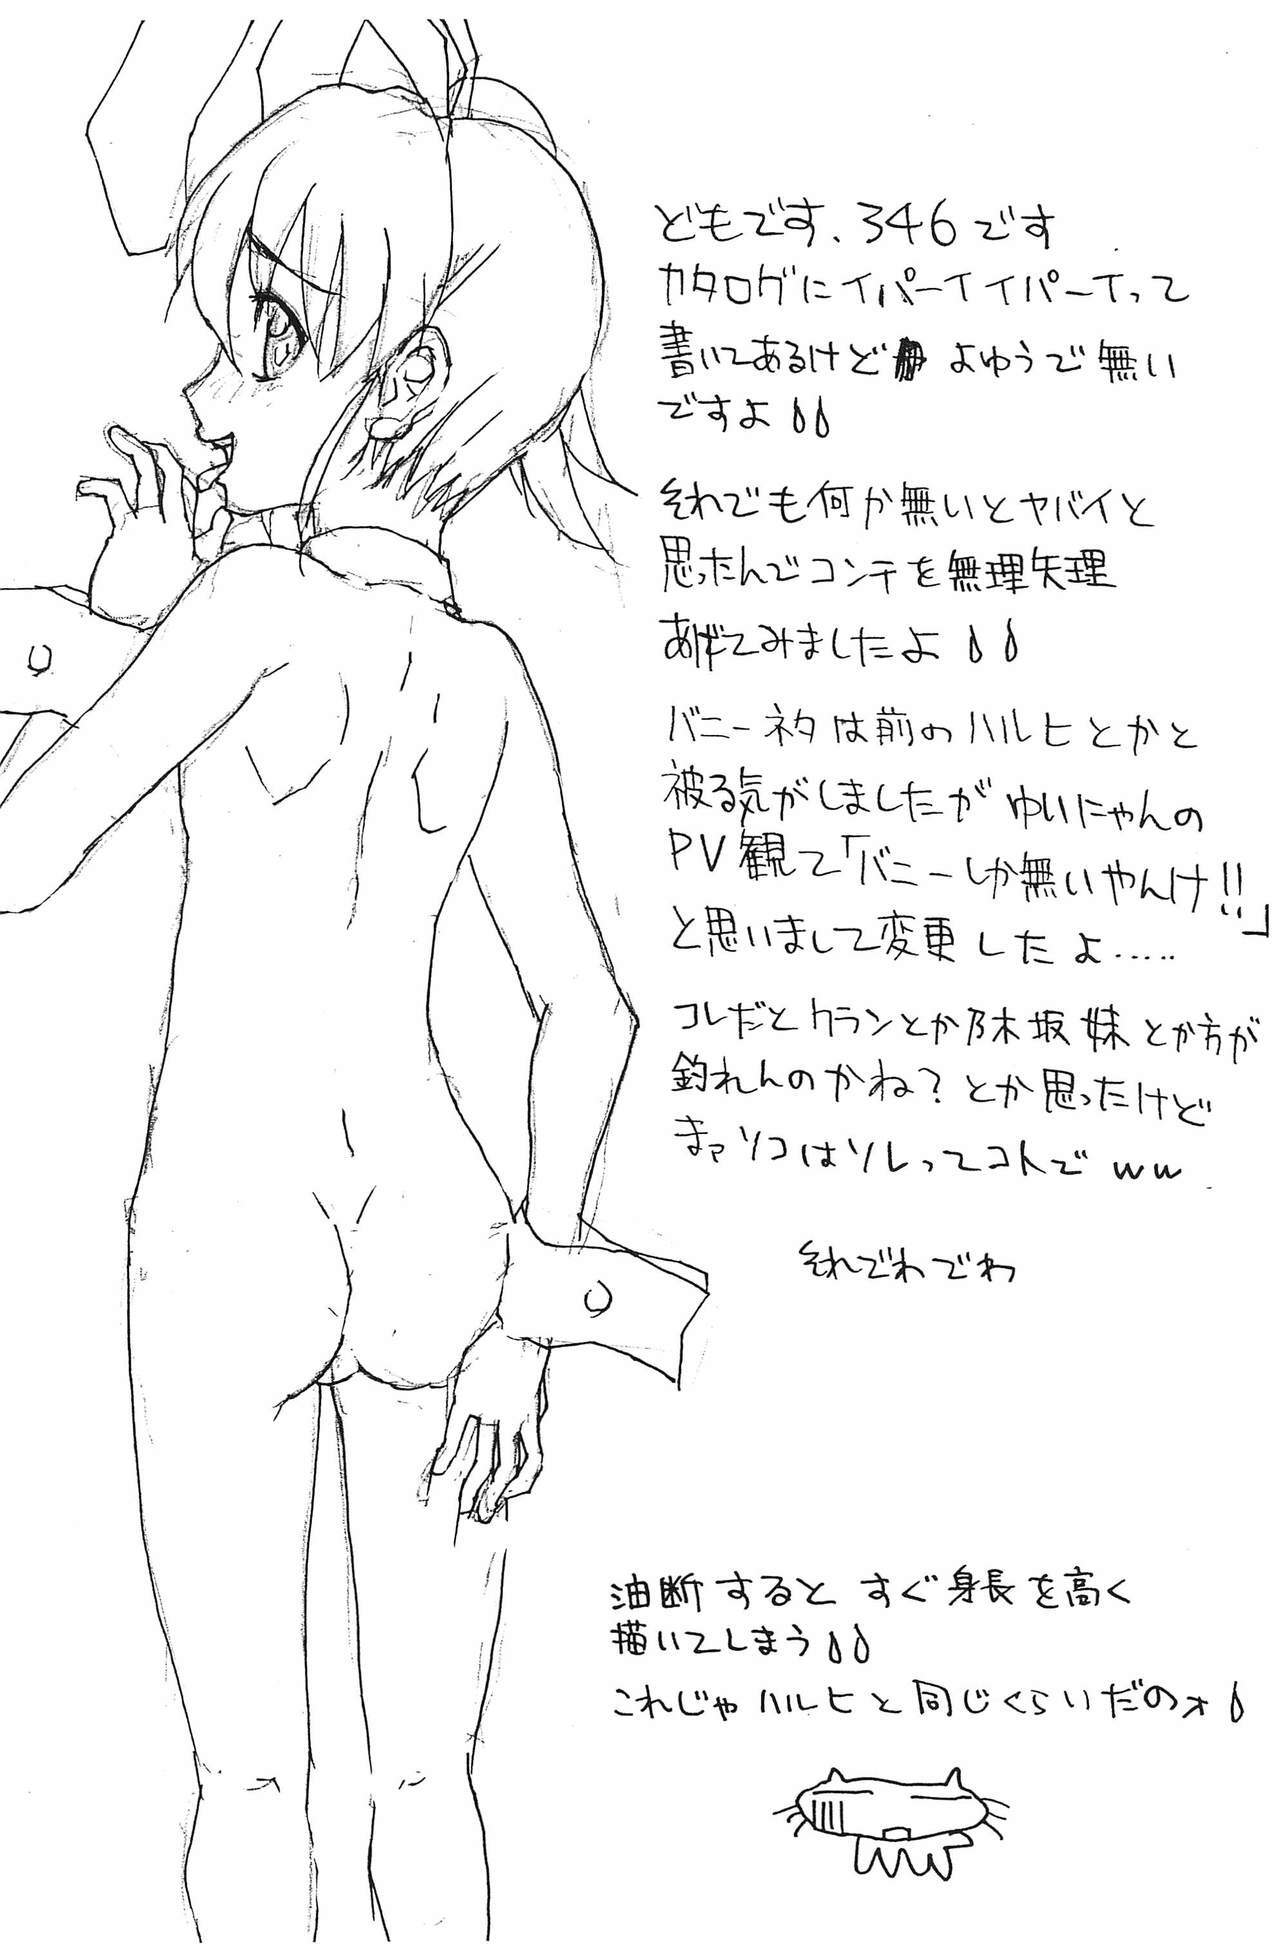 どもです、346です
カタログにイパーイイパーイって
書いてあるけど よゆうで無い
ですよ
それでも何か無いとヤバイと
思ったんでコンテを無理矢理
あげてみましたよ
バニーネタは前のハルヒとかと
被る気がしましたが ゆいにゃんの
PV観て「バニーしか無いやんけ!!」
と思いまして変更したよ……
コレだとクランとか乃木坂妹とか方が
釣れんのかね?とか思ったけど
まァソコはソレってコトでww
それでわでわ
油断すると すぐ身長を高く
描いてしまう
これじゃハルヒと同じくらいだのォ